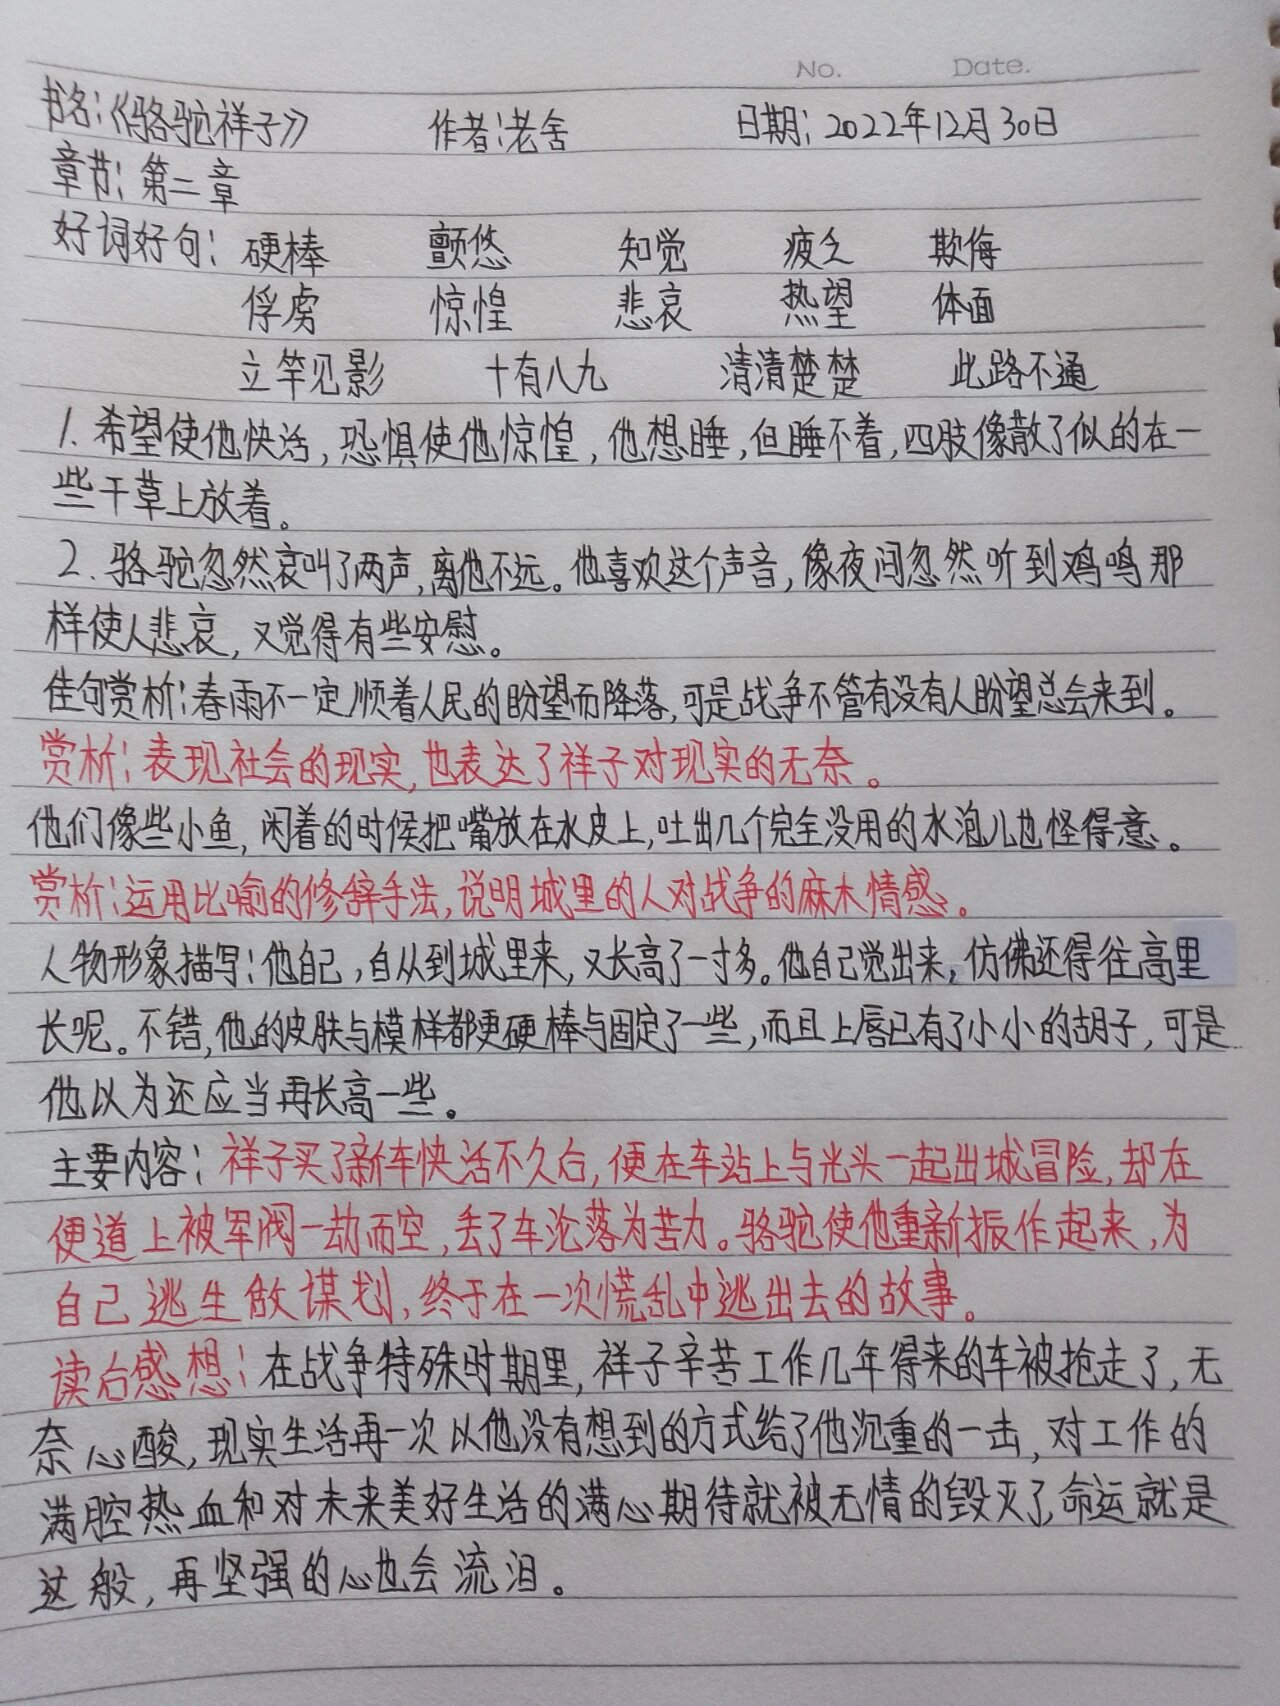 No. Date.
书名:《骆驼祥子》 作者:老舍 日期:2022年12月30日
章节:第二章
好词好句: 硬棒 颤悠 知觉 疲乏 欺侮
俘虏 惊惶 悲哀 热望 体面
立竿见影 十有八九 清清楚楚 此路不通
1.希望使他快活,恐惧使他惊惶,他想睡,但睡不着,四肢像散了似的在一
些干草上放着。
2.骆驼忽然哀叫了两声,离他不远。他喜欢这个声音,像夜间忽然听到鸡鸣那
样使人悲哀,又觉得有些安慰。
佳句赏析:春雨不一定顺着人民的盼望而降落,可是战争不管有没有人盼望总会来到。
赏析:表现社会的现实,也表达了祥子对现实的无奈。
他们像些小鱼,闲着的时候把嘴放在水皮上,吐出几个完全没用的水泡儿也怪得意。
赏析:运用比喻的修辞手法,说明城里的人对战争的麻木情感。
人物形象描写:他自己,自从到城里来,又长高了一寸多。他自己觉出来,仿佛还得往高里
长呢。不错,他的皮肤与模样都更硬棒与固定了一些,而且上唇已有了小小的胡子,可是
他以为还应当再长高一些。
主要内容:祥子买了新车快活不久后,便在车站上与光头一起出城冒险,却在
便道上被军阀一劫而空,丢了车沦落为苦力。骆驼使他重新振作起来,为
自己逃生做谋划,终于在一次慌乱中逃出去的故事。
读后感想:在战争特殊时期里,祥子辛苦工作几年得来的车被抢走了,无
奈心酸,现实生活再一次以他没有想到的方式给了他沉重的一击,对工作的
满腔热血和对未来美好生活的满心期待就被无情的毁灭了,命运就是
这般,再坚强的心也会流泪。